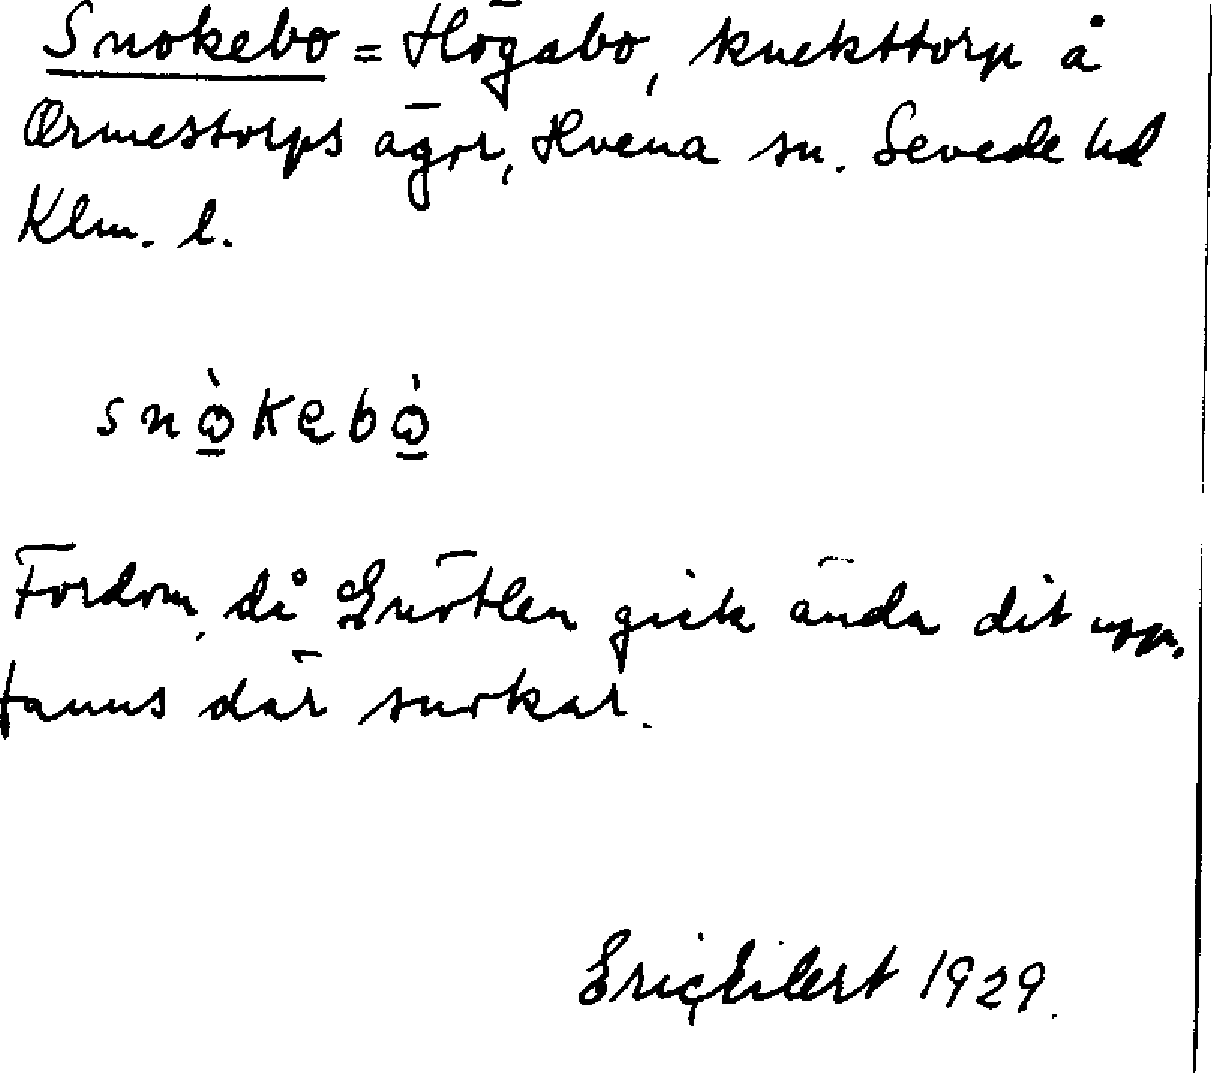 Snokebo = Högabo, knekttorp å
Ormestorps ägor, Hvena sn. Sevede hd
Klm. l.
snòkebò
Fordom, då Gnötlen gick ända dit upp,
fanns där snokar.
Eric Eilert 1929.